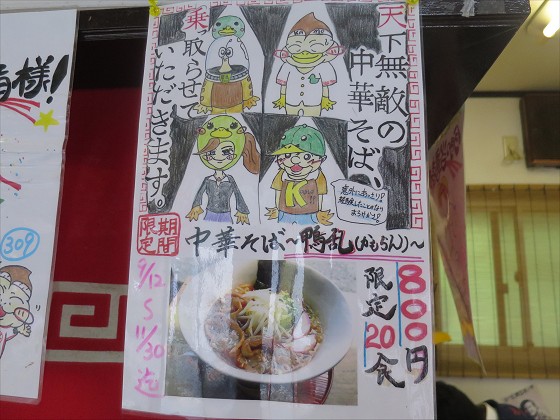 天下無敵の
中華そば、
乗っ取らせて
いただきます。
意外にあっさり?
K
期間
限定
中華そば～鴨乱(かもらん)～
9/12
～
11/30
迄
800円
限定
20食
様!
309